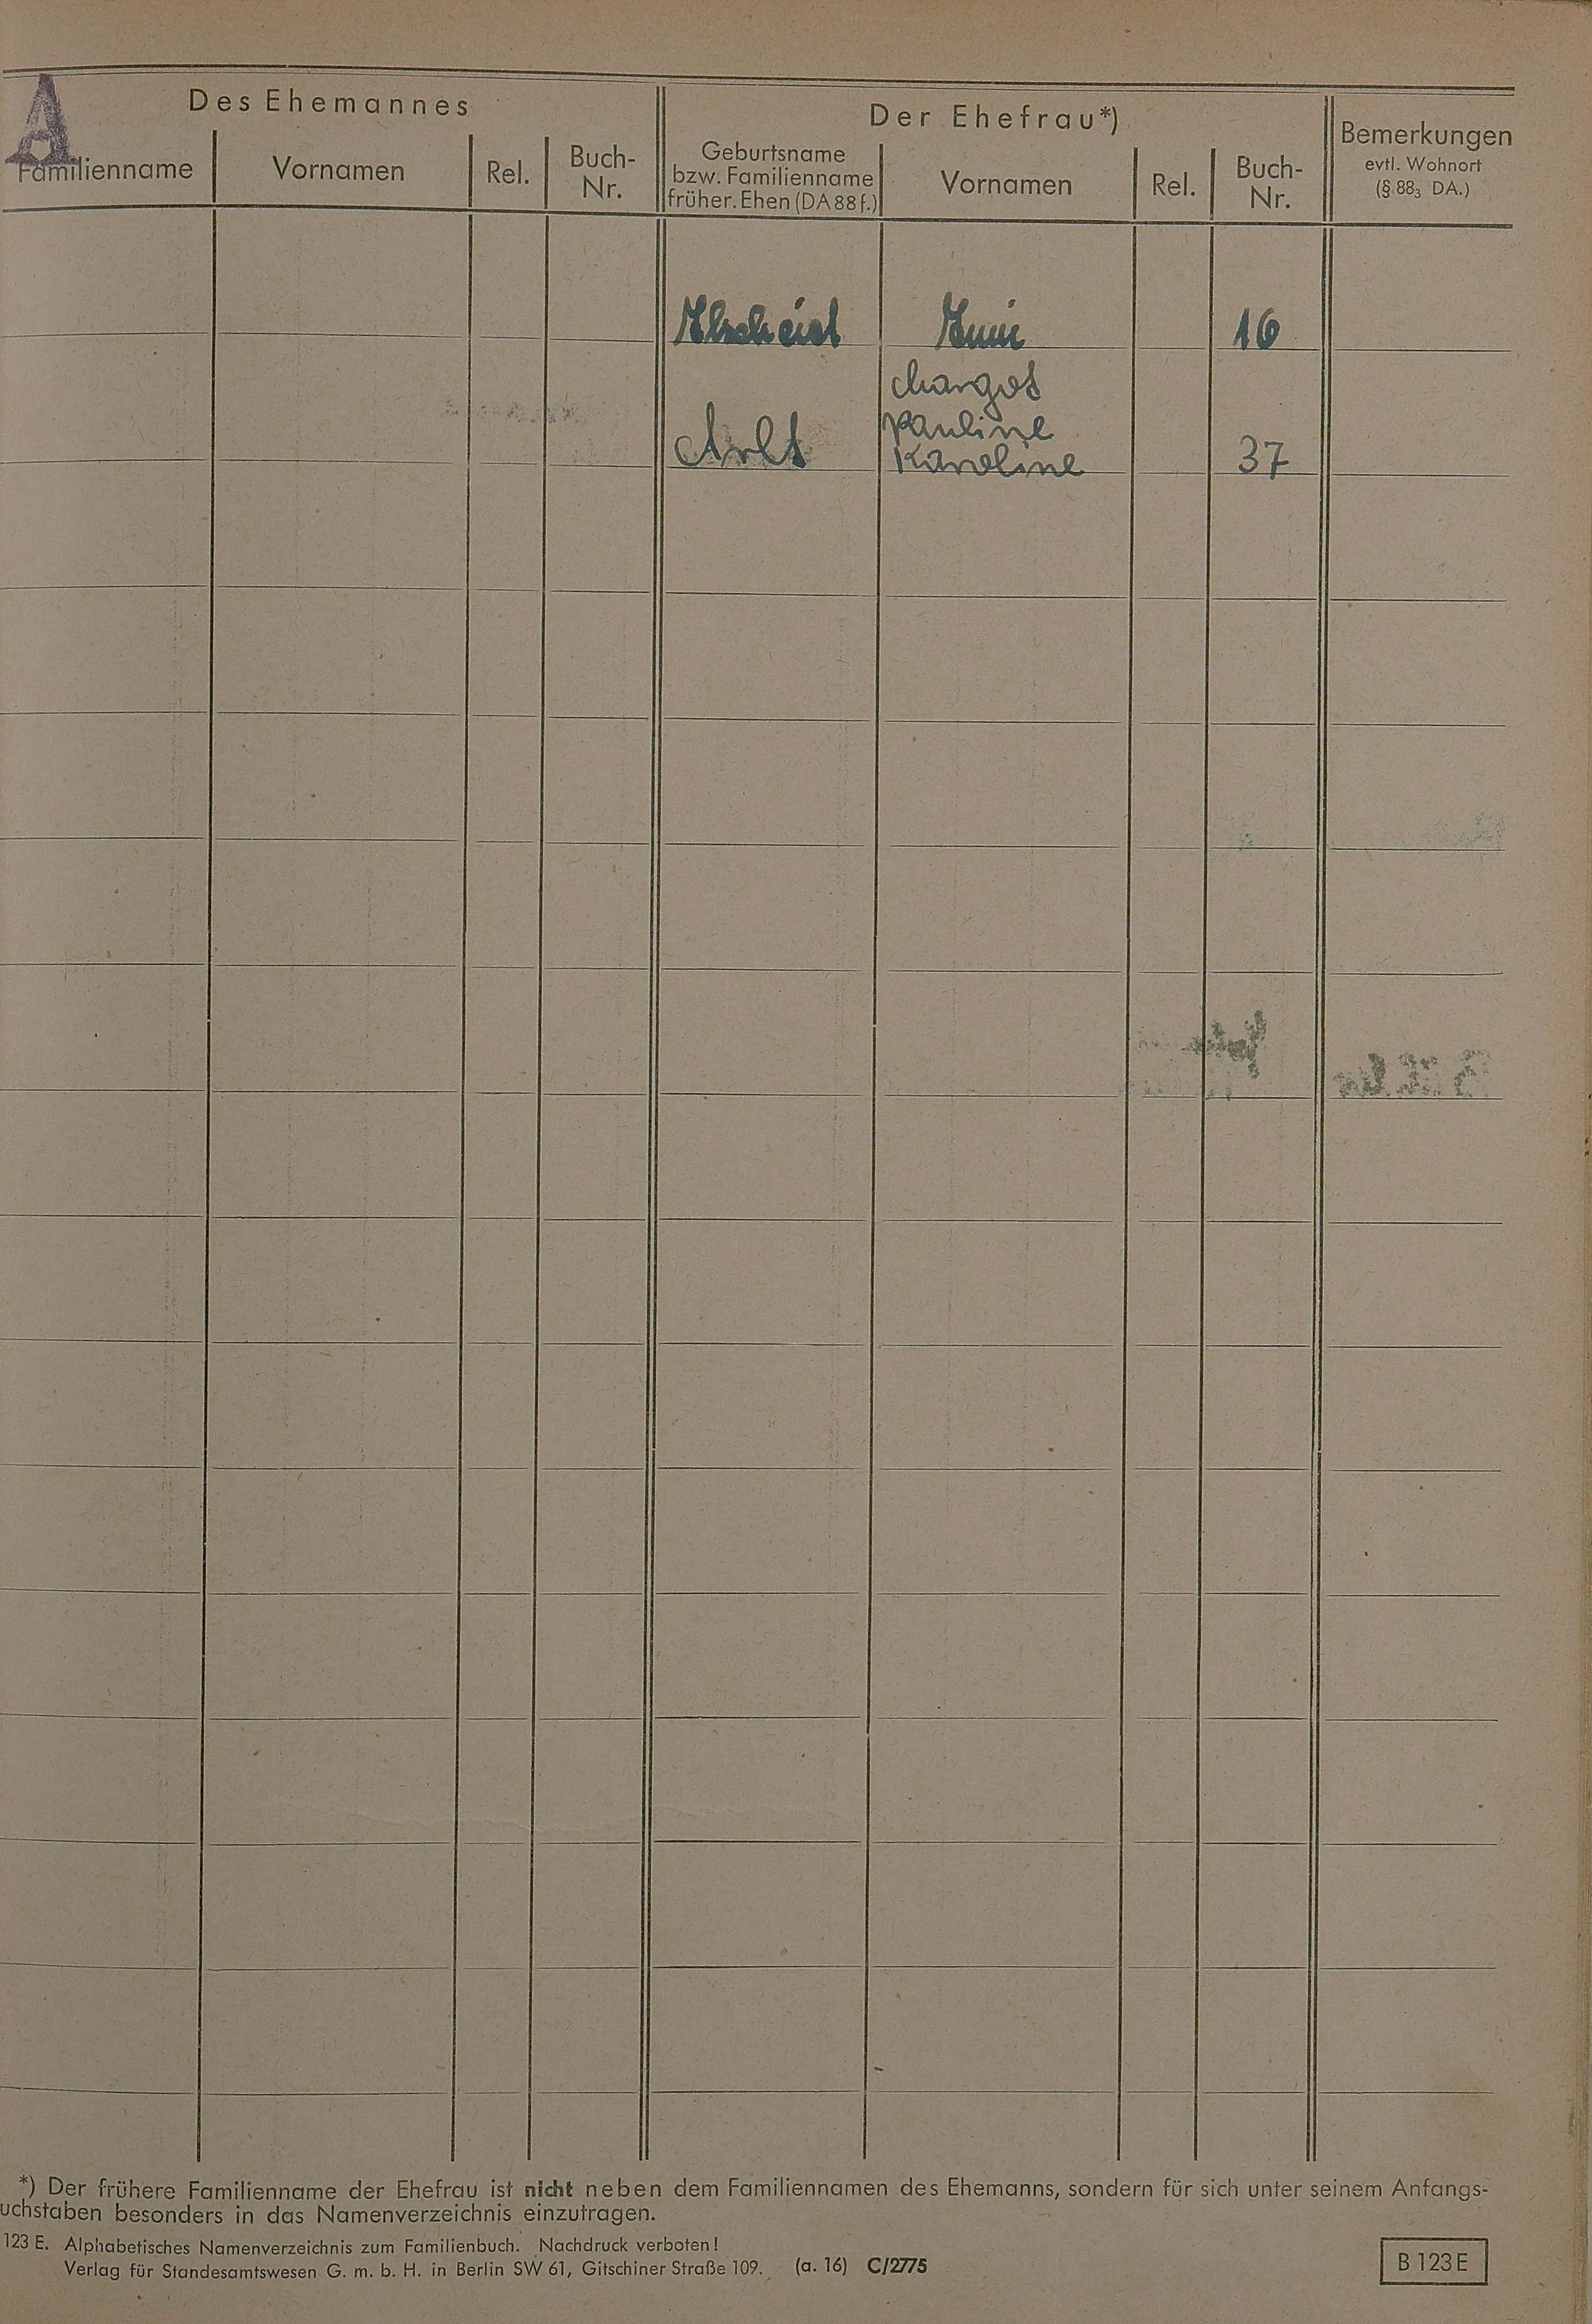 A
Des Ehemannes
Der Ehefrau*)
Familienname
Vornamen
Rel.
Buch-
Nr.
Geburtsname
bzw. Familienname
früher. Ehen (DA 88 f.)
Vornamen
Rel.
Buch-
Nr.
Bemerkungen
evtl. Wohnort
(§ 88₃ DA.)
16
Margot
Pauline
Arlt
Karoline
37
*) Der frühere Familienname der Ehefrau ist nicht neben dem Familiennamen des Ehemanns, sondern für sich unter seinem Anfangs-
uchstaben besonders in das Namenverzeichnis einzutragen.
123 E. Alphabetisches Namenverzeichnis zum Familienbuch. Nachdruck verboten!
Verlag für Standesamtswesen G. m. b. H. in Berlin SW 61, Gitschiner Straße 109. (a. 16) C/2775
B 123 E